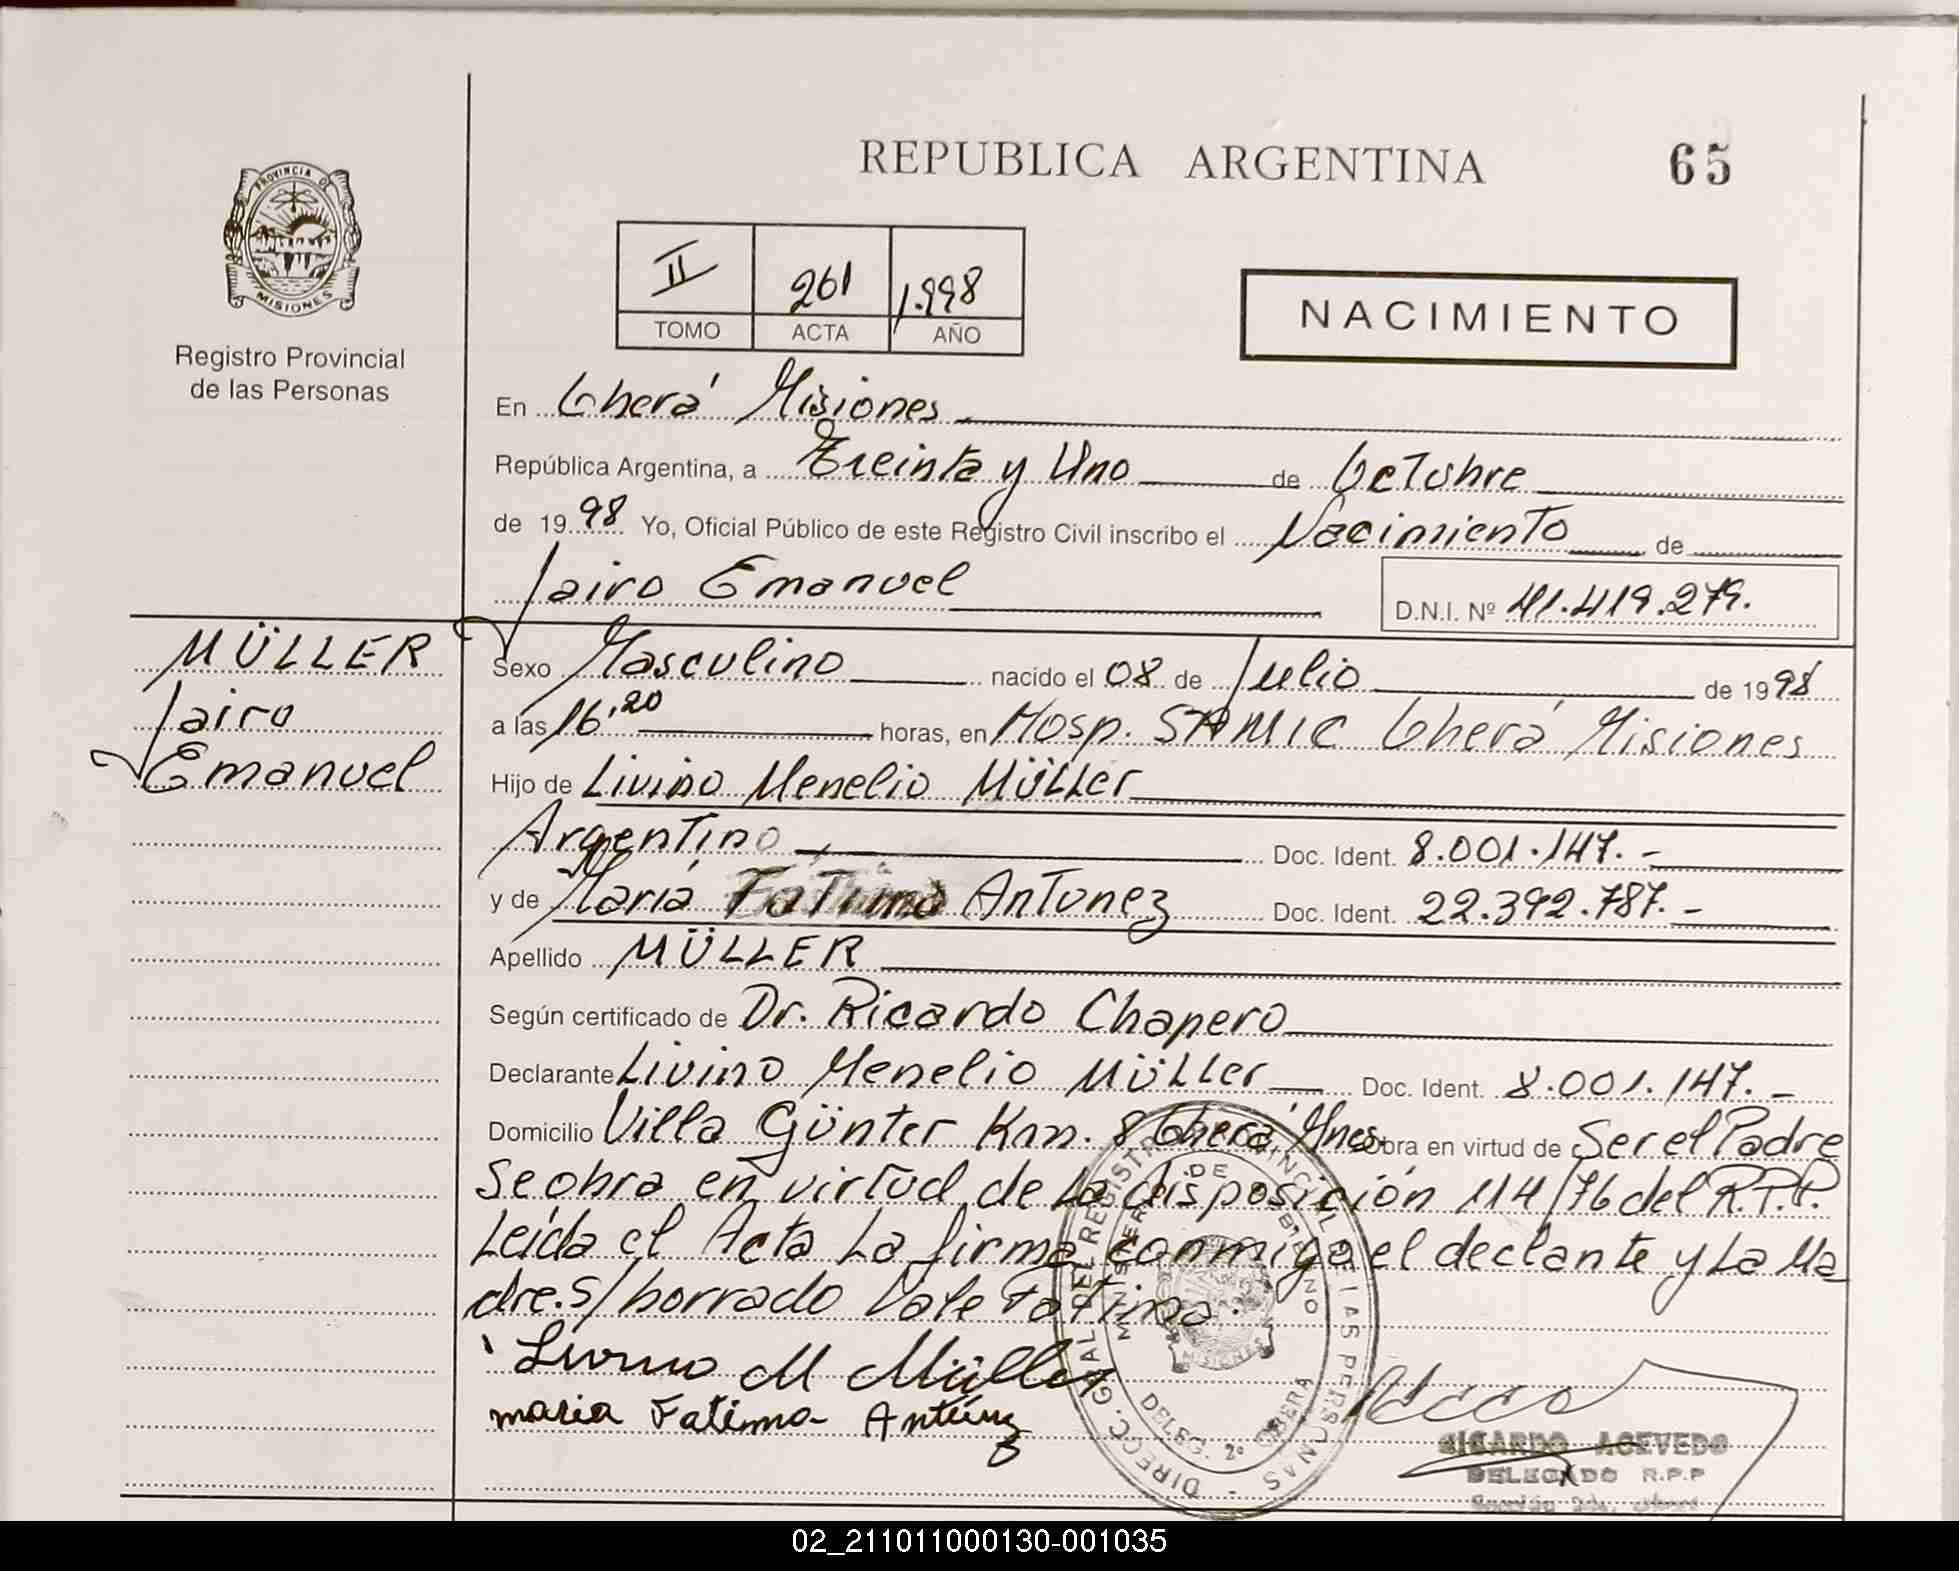 REPUBLICA ARGENTINA
65
PROVINCIA DE
MISIONES
Registro Provincial
de las Personas
II 261 1.998
TOMO ACTA AÑO
NACIMIENTO
En Oberá Misiones
República Argentina, a Treinta y Uno de Octubre
de 1998 Yo, Oficial Público de este Registro Civil inscribo el Nacimiento de
Jairo Emanuel D.N.I. Nº 41.419.279.
MÜLLER
Jairo
Emanuel
Sexo Masculino nacido el 08 de Julio de 1998
a las 16,20 horas, en Hosp. SAMIC Oberá Misiones
Hijo de Livino Menelio Müller
Argentino Doc. Ident. 8.001.147.-
y de María Fatima Antunez Doc. Ident. 22.392.787.-
Apellido MÜLLER
Según certificado de Dr. Ricardo Chapero
Declarante Livino Menelio Müller Doc. Ident. 8.001.147.-
Domicilio Villa Günter Km. 8 Oberá Mnes. Obra en virtud de Ser el Padre
Se obra en virtud de La disposición 114/76 del R.P.P.
Leída el Acta La firma conmigo el declante y La Ma
dre. S/borrado Vale Fatima.
Livino M Müller
maria Fatima Antúnez
DIRECC. GRAL DEL REGISTRO PROVINCIAL DE LAS PERSONAS
MINISTERIO DE GOBIERNO
MISIONES
DELEG. 2º OBERA
RICARDO ACEVEDO
DELEGADO R.P.P
02_211011000130-001035